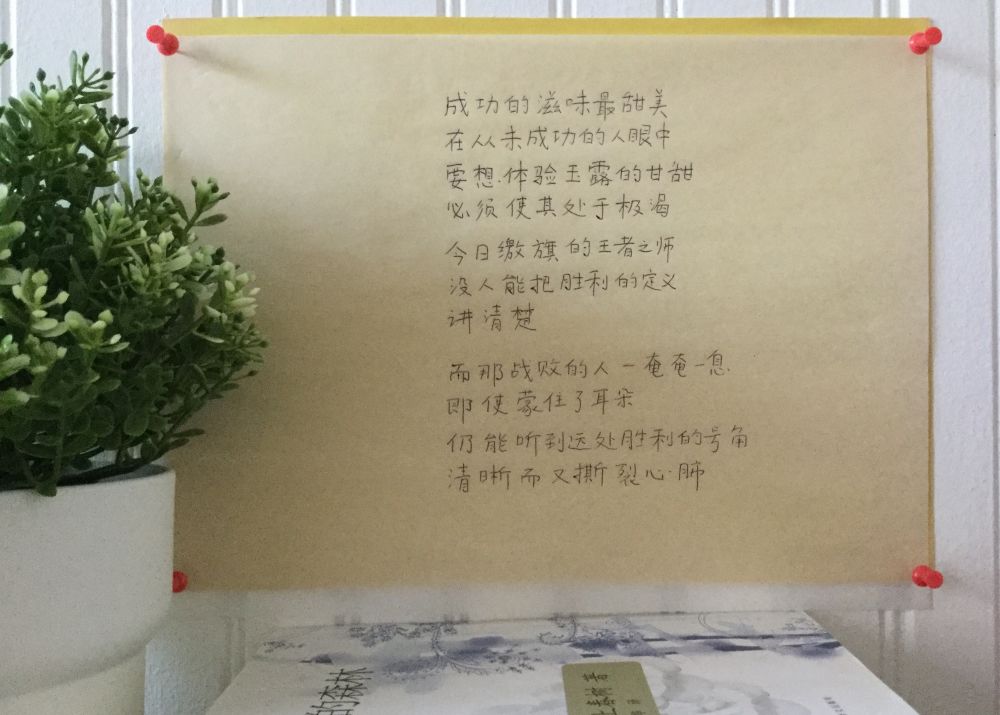 成功的滋味最甜美
在从未成功的人眼中
要想体验玉露的甘甜
必须使其处于极渴
今日缴旗的王者之师
没人能把胜利的定义
讲清楚
而那战败的人一奄奄一息
即使蒙住了耳朵
仍能听到远处胜利的号角
清晰而又撕裂心肺
的森林